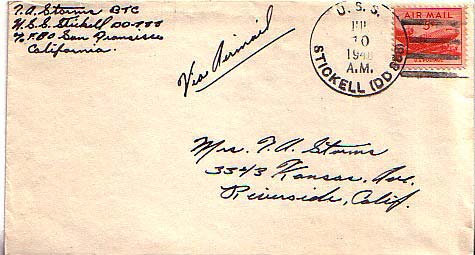 T.A. Storms BTC
U.S.S. Stickell DD-888
% F.P.O San Francisco
California.
Via Airmail
U.S.S.
10
A.M.
STICKELL (DD 888)
AIR MAIL
5¢
Mrs. T. A. Storms
3343 Kansas, Ave.
Riverside, Calif.